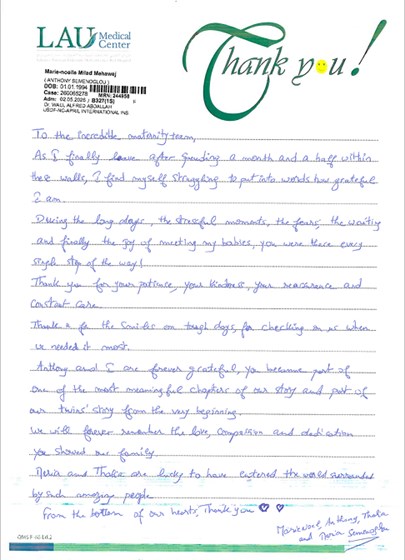 LAU Medical Center
Thank you!
Marie-noelle Milad Mahawej
(ANTHONY SEMENOGLOU)
DOB: 01.01.1994
Case: 260065278 MRN: 244958
Adm: 02.05.2026 | B327(1S)
Dr. WAEL ALFRED ABDALLAH
USDF-NC-APRIL INTERNATIONAL INS
To the incredible maternity team,
As I finally leave after spending a month and a half within
these walls, I find myself struggling to put into words how grateful
I am.
During the long days, the stressful moments, the fears, the waiting
and finally the joy of meeting my babies, you were there every
single step of the way!
Thank you for your patience, your kindness, your reassurance and
constant care.
Thank u for the smiles on tough days, for checking on us when
we needed it most.
Anthony and I are forever grateful, you became part of
one of the most meaningful chapters of our story and part of
our twins' story from the very beginning.
We will forever remember the love, compassion and dedication
you showed our family.
and Thalia are lucky to have entered the world surrounded
by such amazing people
From the bottom of our hearts, Thank you
Marienoel, Anthony, Thalia
and Semenoglou